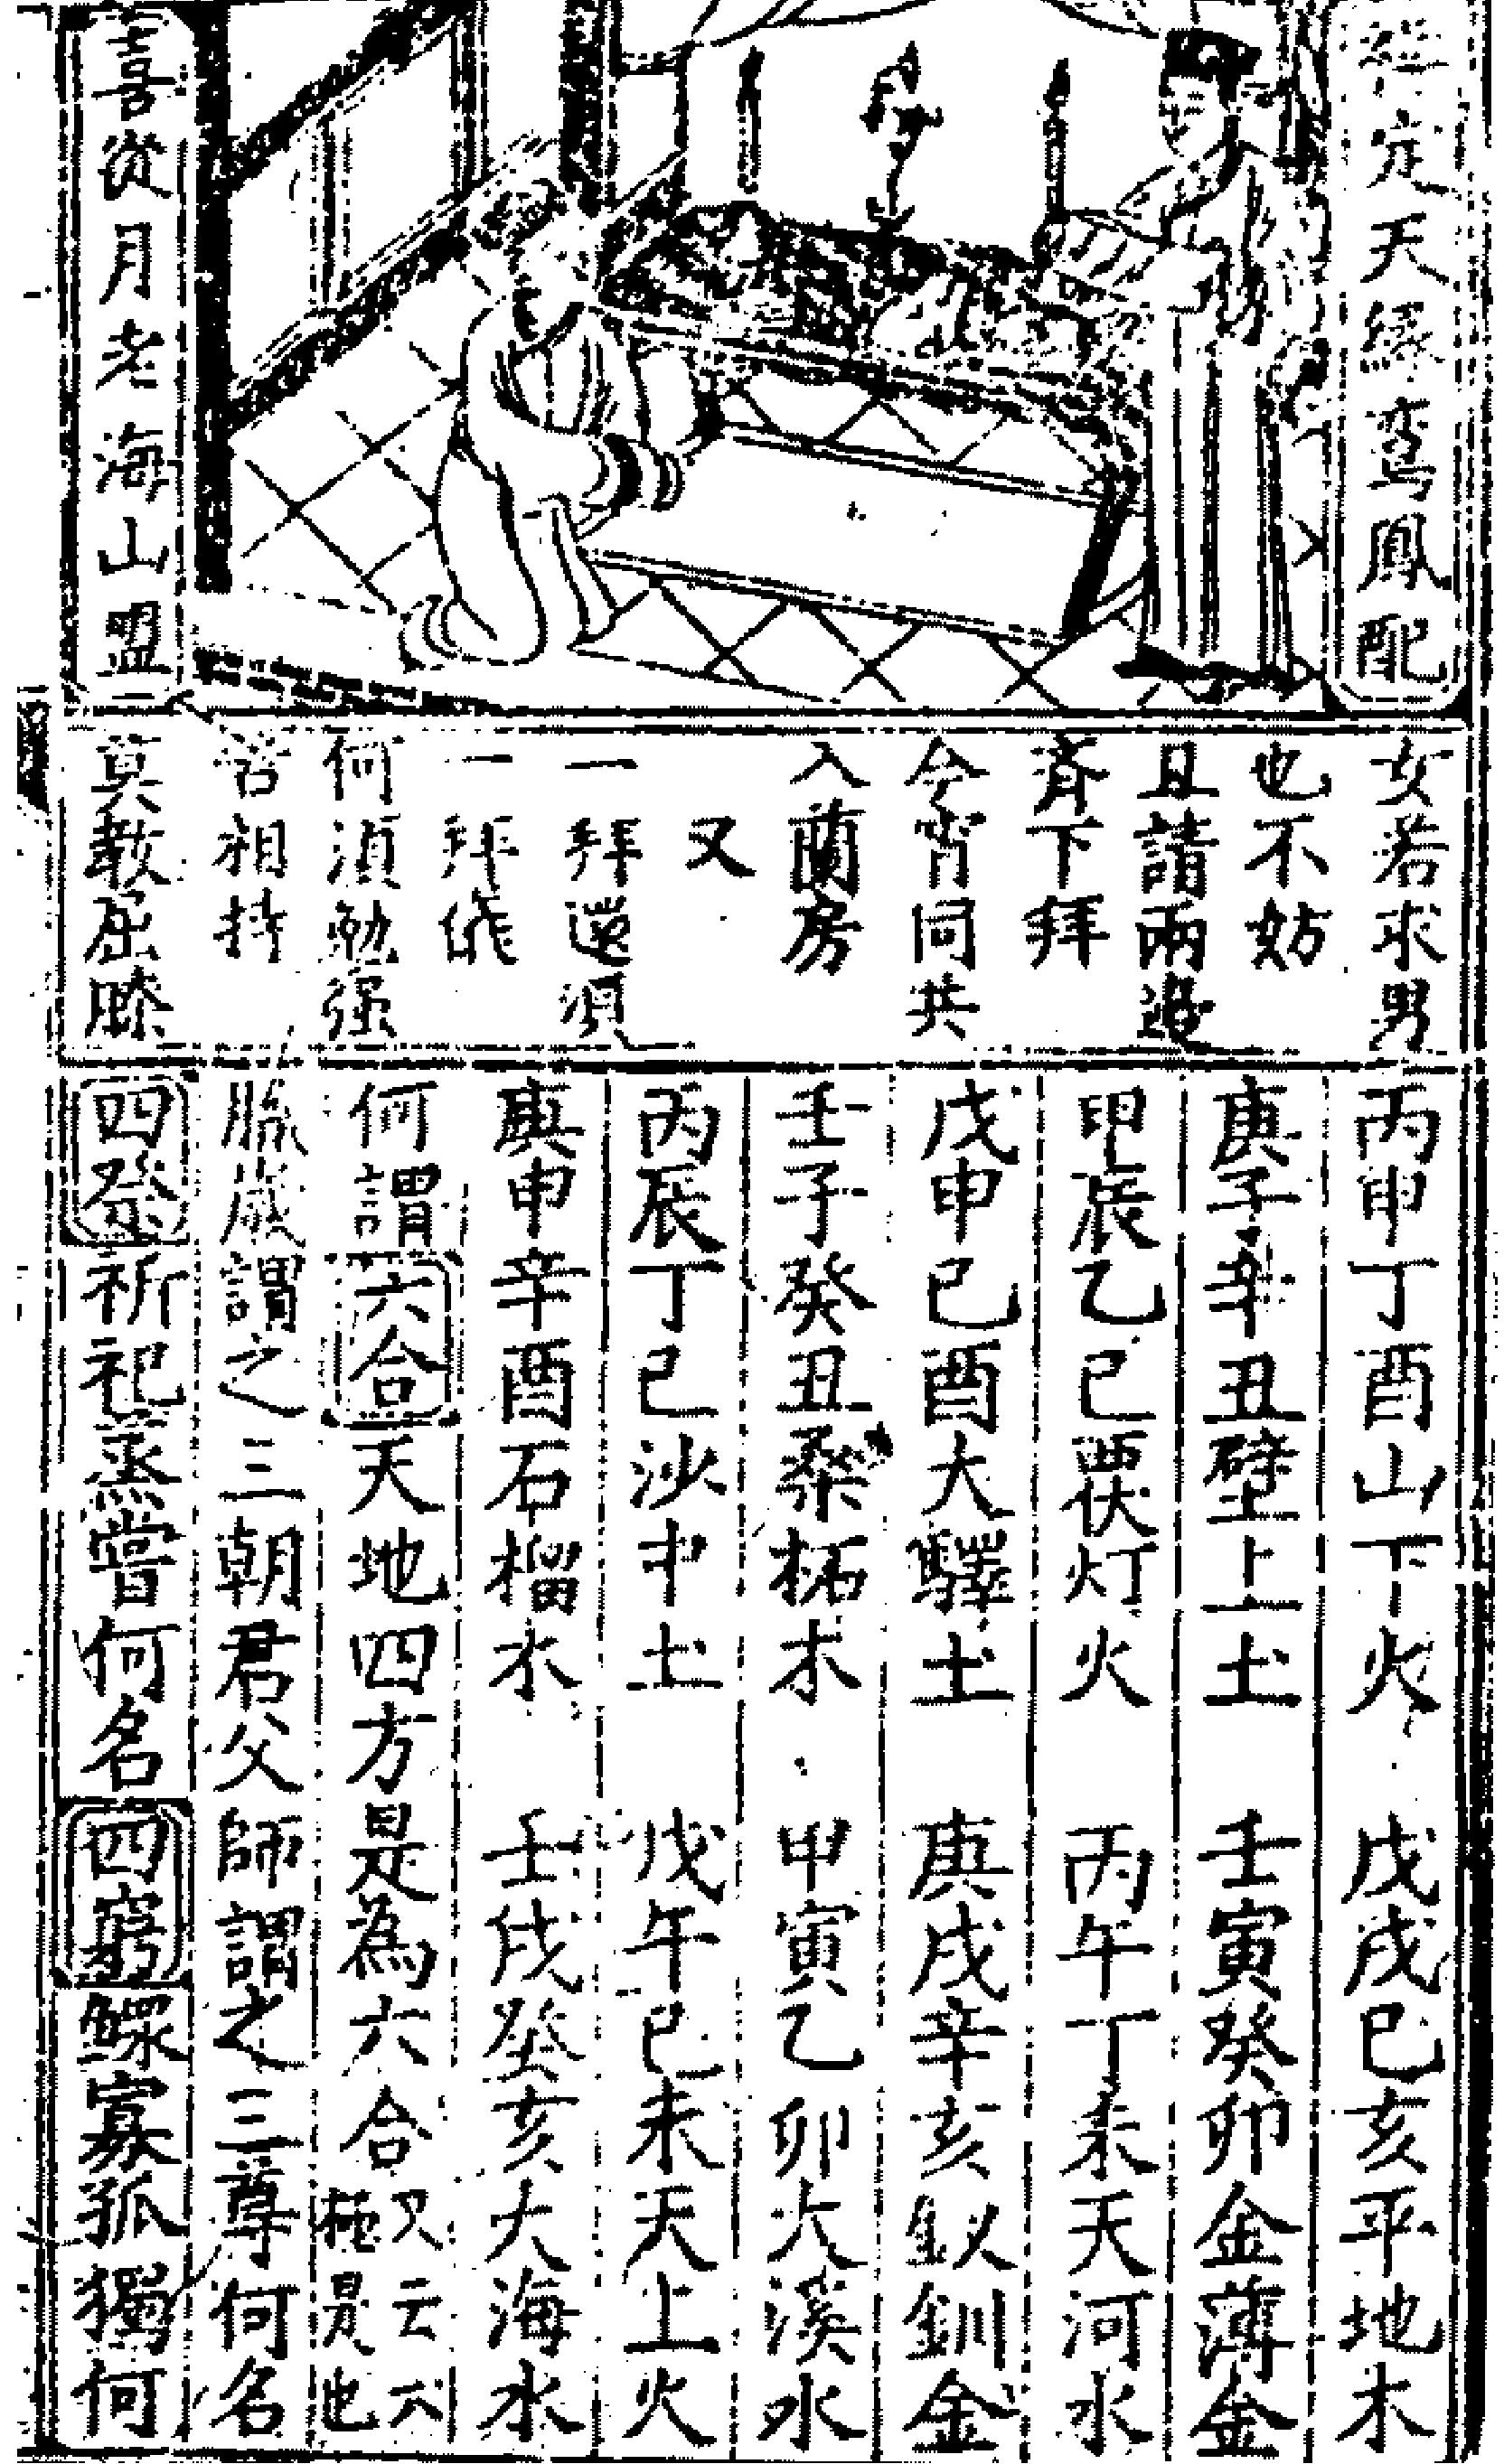 定天緣鸞鳳配
喜從月老海山盟
女若求男
也不妨
且請兩邊
齊下拜
今宵同共
入蘭房
又
一拜還須
一拜低
何須勉强
苦相持
莫教屈膝
丙申丁酉山下火　戊戌己亥平地木
庚子辛丑壁上土　壬寅癸卯金薄金
甲辰乙巳覆灯火　丙午丁未天河水
戊申己酉大驛土　庚戌辛亥釵釧金
壬子癸丑桑柘木　甲寅乙卯大溪水
丙辰丁巳沙中土　戊午己未天上火
庚申辛酉石榴木　壬戌癸亥大海水
何謂六合天地四方是為六合又云六極是也
歲謂之三朝君父師謂之三尊何名
四祭祈祀烝嘗何名四窮鰥寡孤獨何